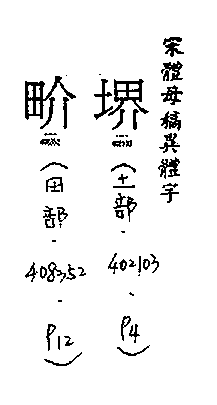 宋體母稿異體字
堺
(土部.402103.P4)
畍
(田部.408352.P12)